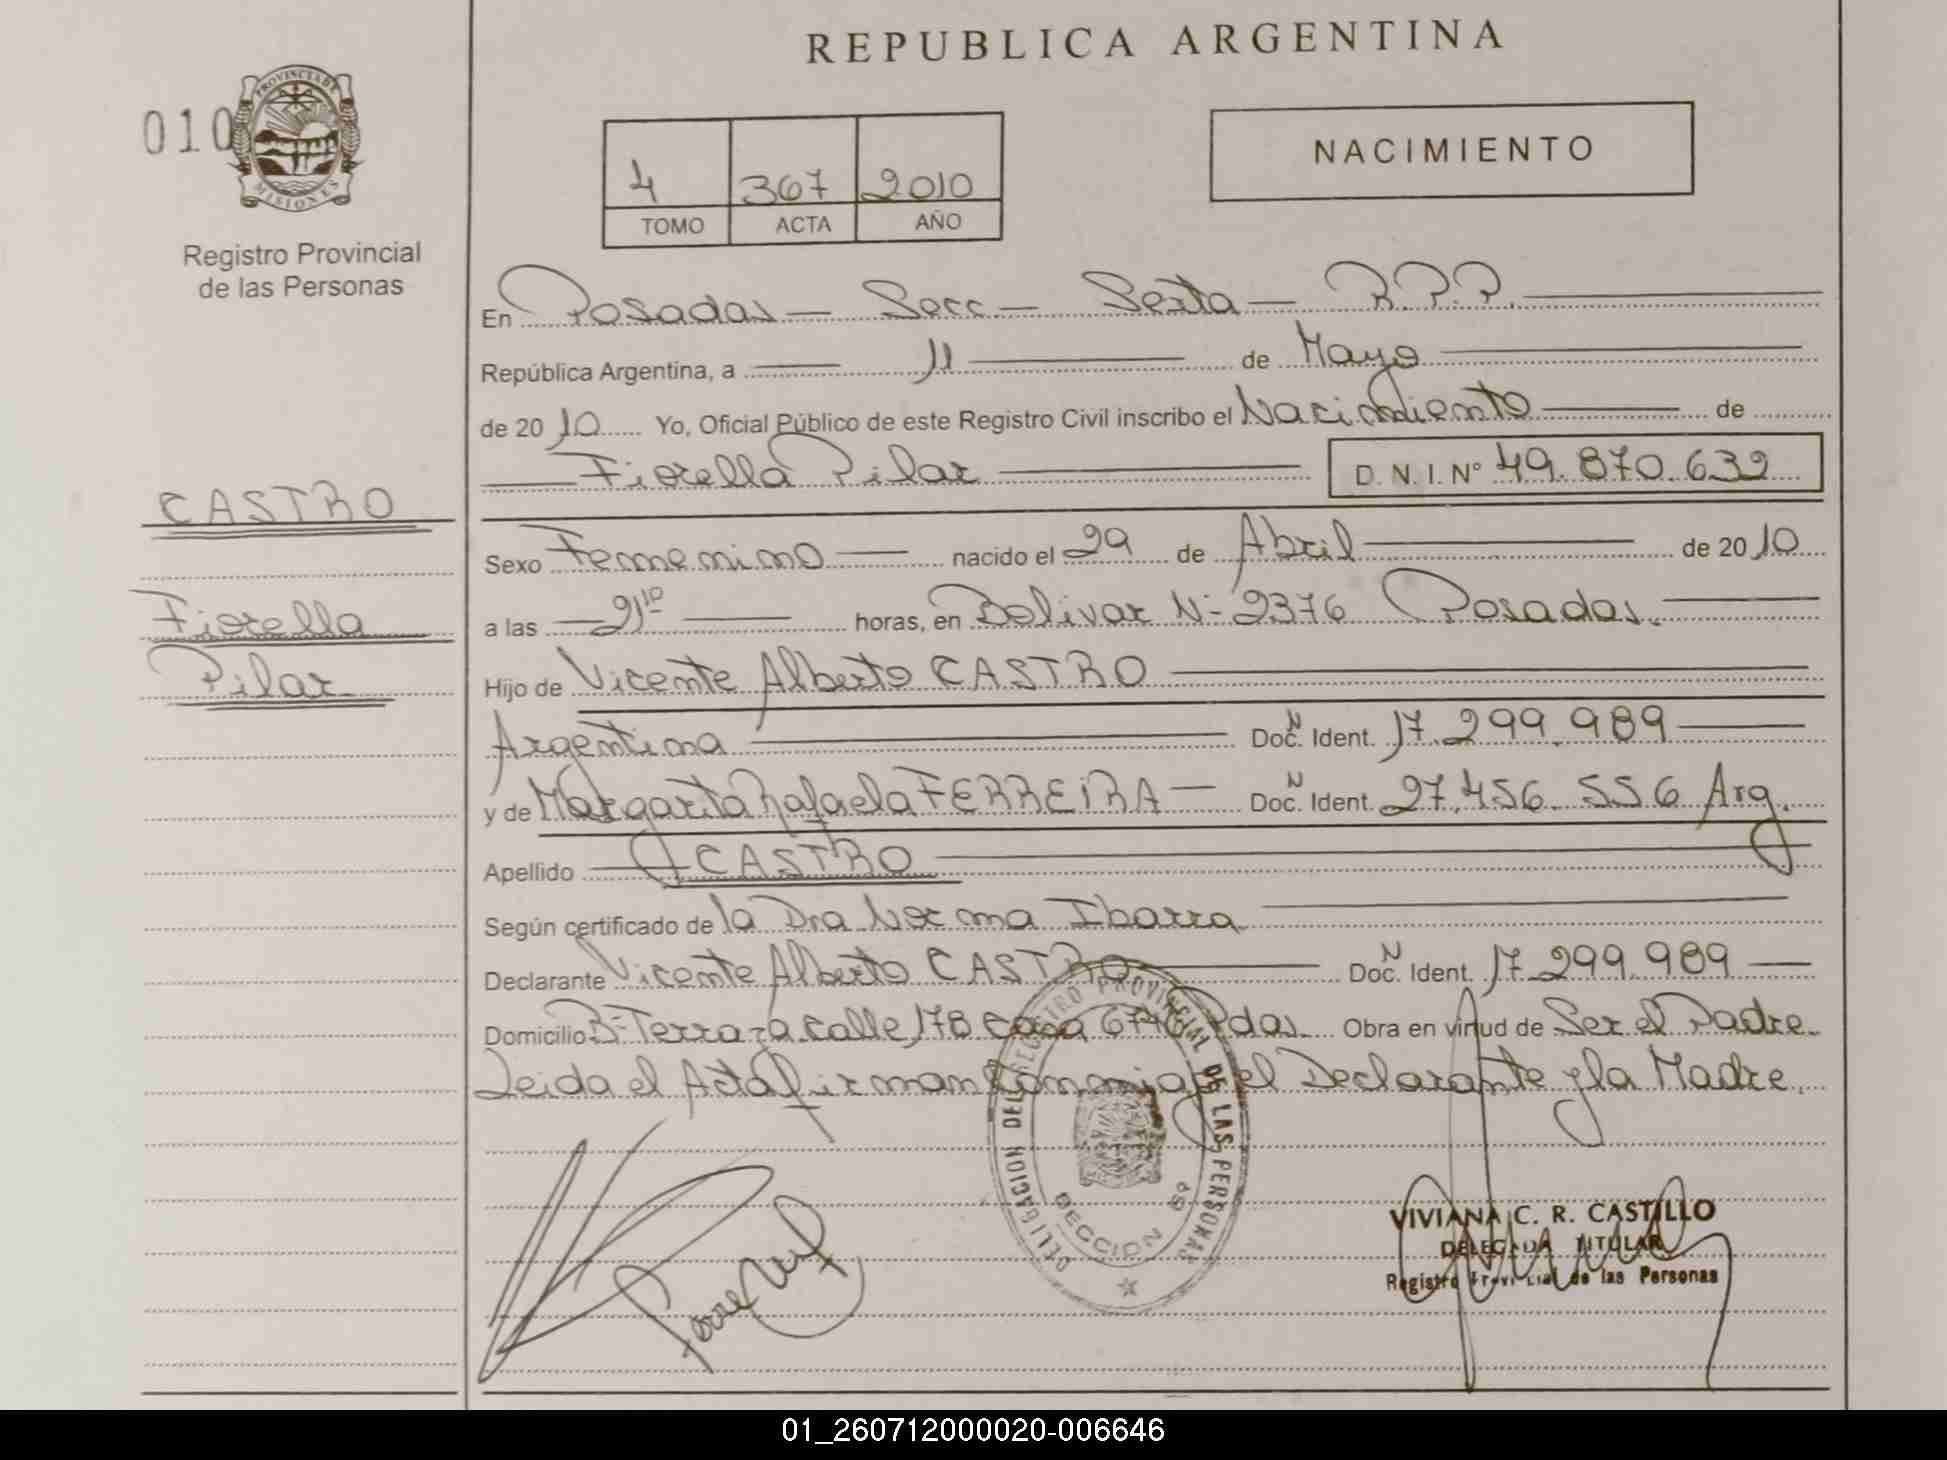 REPUBLICA ARGENTINA
010
PROVINCIA DE
MISIONES
Registro Provincial
de las Personas
4 367 2010
TOMO ACTA AÑO
NACIMIENTO
En Posadas — Secc — Sexta — R.P.P.
República Argentina, a 11 de Mayo
de 2010 Yo, Oficial Público de este Registro Civil inscribo el Nacimiento de
Fiorella Pilar D.N.I. Nº 49.870.632
CASTRO
Fiorella
Pilar
Sexo Femenino nacido el 29 de Abril de 2010
a las 21¹⁰ horas, en Bolivar Nº 2376 Posadas.
Hijo de Vicente Alberto CASTRO
Argentina Doc. N Ident. 17.299.989
y de Margarita Rafaela FERREIRA — Doc. N Ident. 27.456.556 Arg.
Apellido CASTRO
Según certificado de la Dra Norma Ibarra
Declarante Vicente Alberto CASTRO Doc. N Ident. 17.299.989
Domicilio Bº Terraza calle 178 casa 6746 Pdas. Obra en virtud de Ser el Padre.
Leida el Acta firman conmigo el Declarante y la Madre.
DELEGACION DEL REGISTRO PROVINCIAL DE LAS PERSONAS
SECCION 6ª
VIVIANA C. R. CASTILLO
DELEGADA TITULAR
Registro Provincial de las Personas
01_260712000020-006646